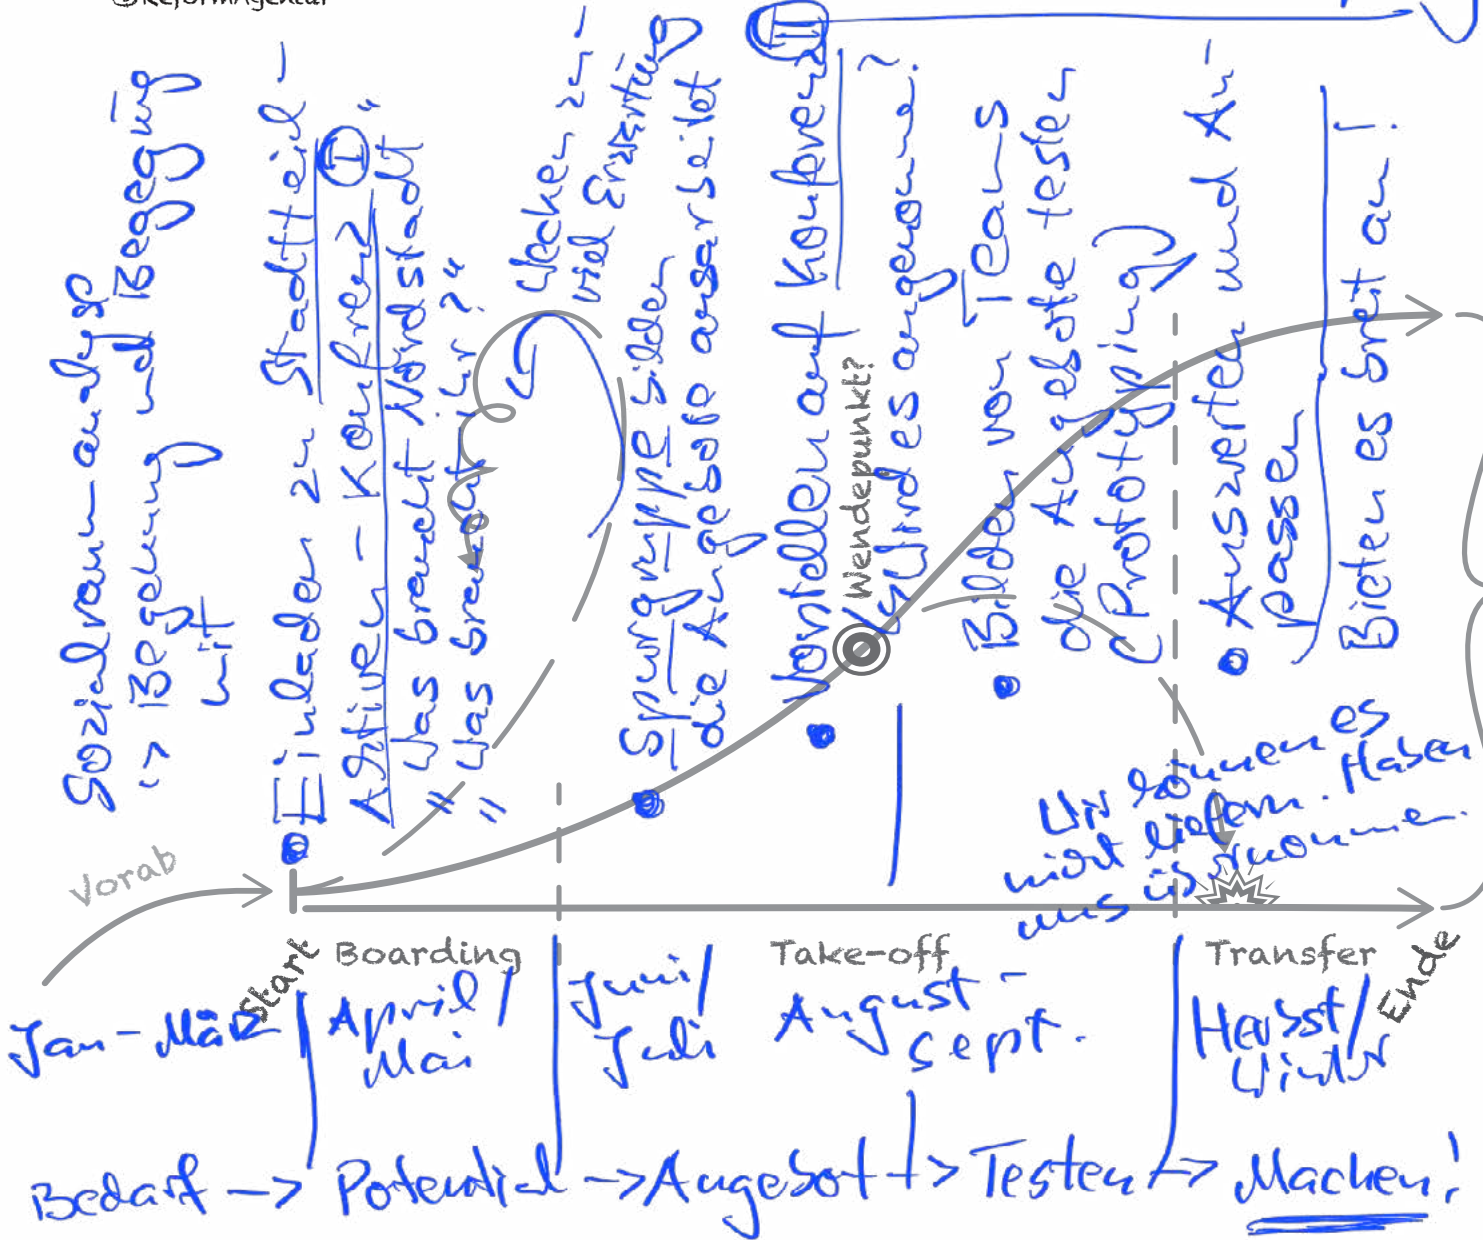 ©ReformAgentur
Sozialraumanalyse
-> Begehung und Begegnung
mit
Einladen zu Stadtteil-
Aktiven-Konfrenz I
"Was braucht Nordstadt"
"Was braucht ihr?"
Wecken zu-
viel Erwartung
Spurgruppe bilden
die Angebote ausarbeitet
II
Vorstellen auf Konferenz
Wendepunkt?
Wird es angenomme?
Bilden von Teams
die Angebote testen
(Prototyping)
Auswerten und An-
passen
Bieten es bret an!
Wir können es
nicht liefern. Haben
uns übernommen.
Vorab
Start
Boarding
Take-off
Transfer
Ende
Jan-März
April/
Mai
Juni/
Juli
August-
Sept.
Herbst/
Winter
Bedarf -> Potential -> Angebot -> Testen -> Machen!